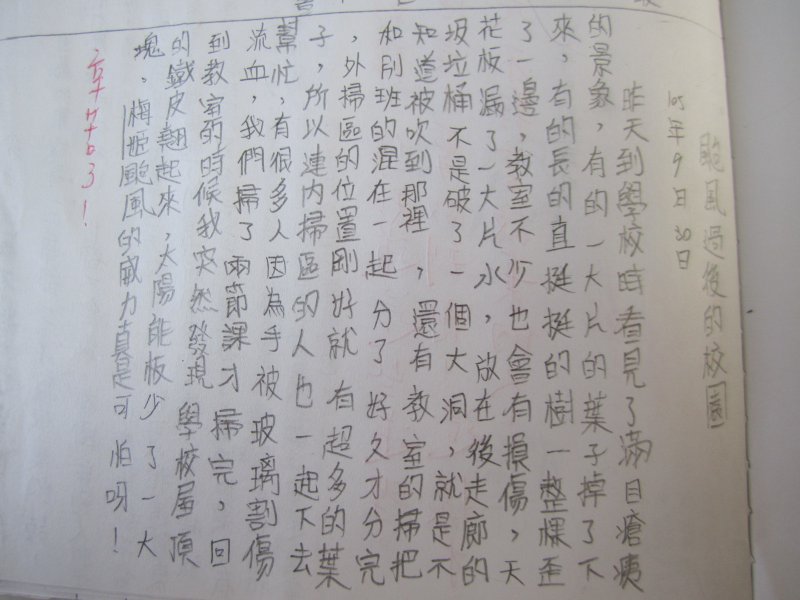 颱風過後的校園
105年9日30日
昨天到學校時看見了滿目瘡痍
的景象,有的一大片的葉子掉了下
來,有的長的直挺挺的樹一整棵歪
了一邊,教室不少也會有損傷,天
花板漏了一大片水,放在後走廊的
圾垃桶不是破了一個大洞,就是不
知道被吹到那裡,還有教室的掃把
和別班的混在一起分了好久才分完
,外掃區的位置剛好就有超多的葉
子,所以連內掃區的人也一起下去
幫忙,有很多人因為手被玻璃割傷
流血,我們掃了兩節課才掃完,回
到教室的時候我突然發現學校屋頂
的鐵皮翹起來,太陽能板少了一大
塊。梅姬颱風的威力真是可怕呀!
辛苦了!